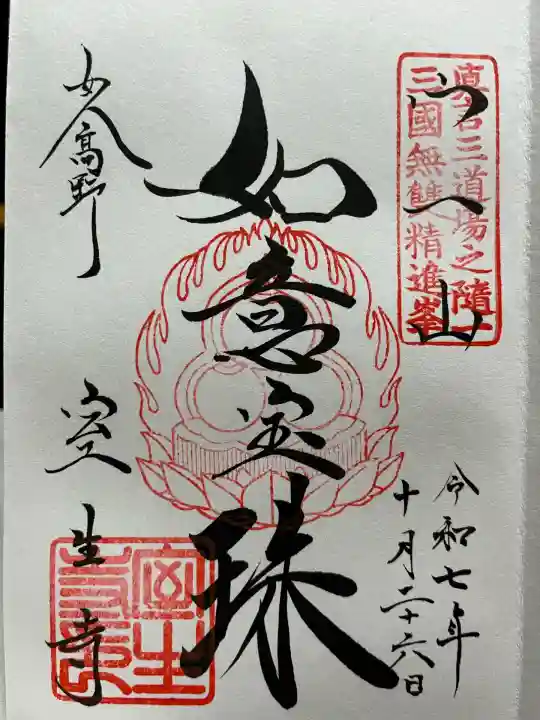 真言三道場之随一
三國無雙精進峯
宀一山
令和七年
十月二十六日
如意宝珠
女人高野
室生寺
室生寺印